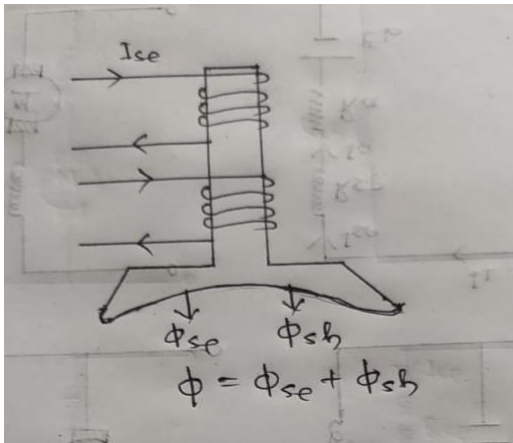 Ise
ϕse ϕsh
ϕ = ϕse + ϕsh